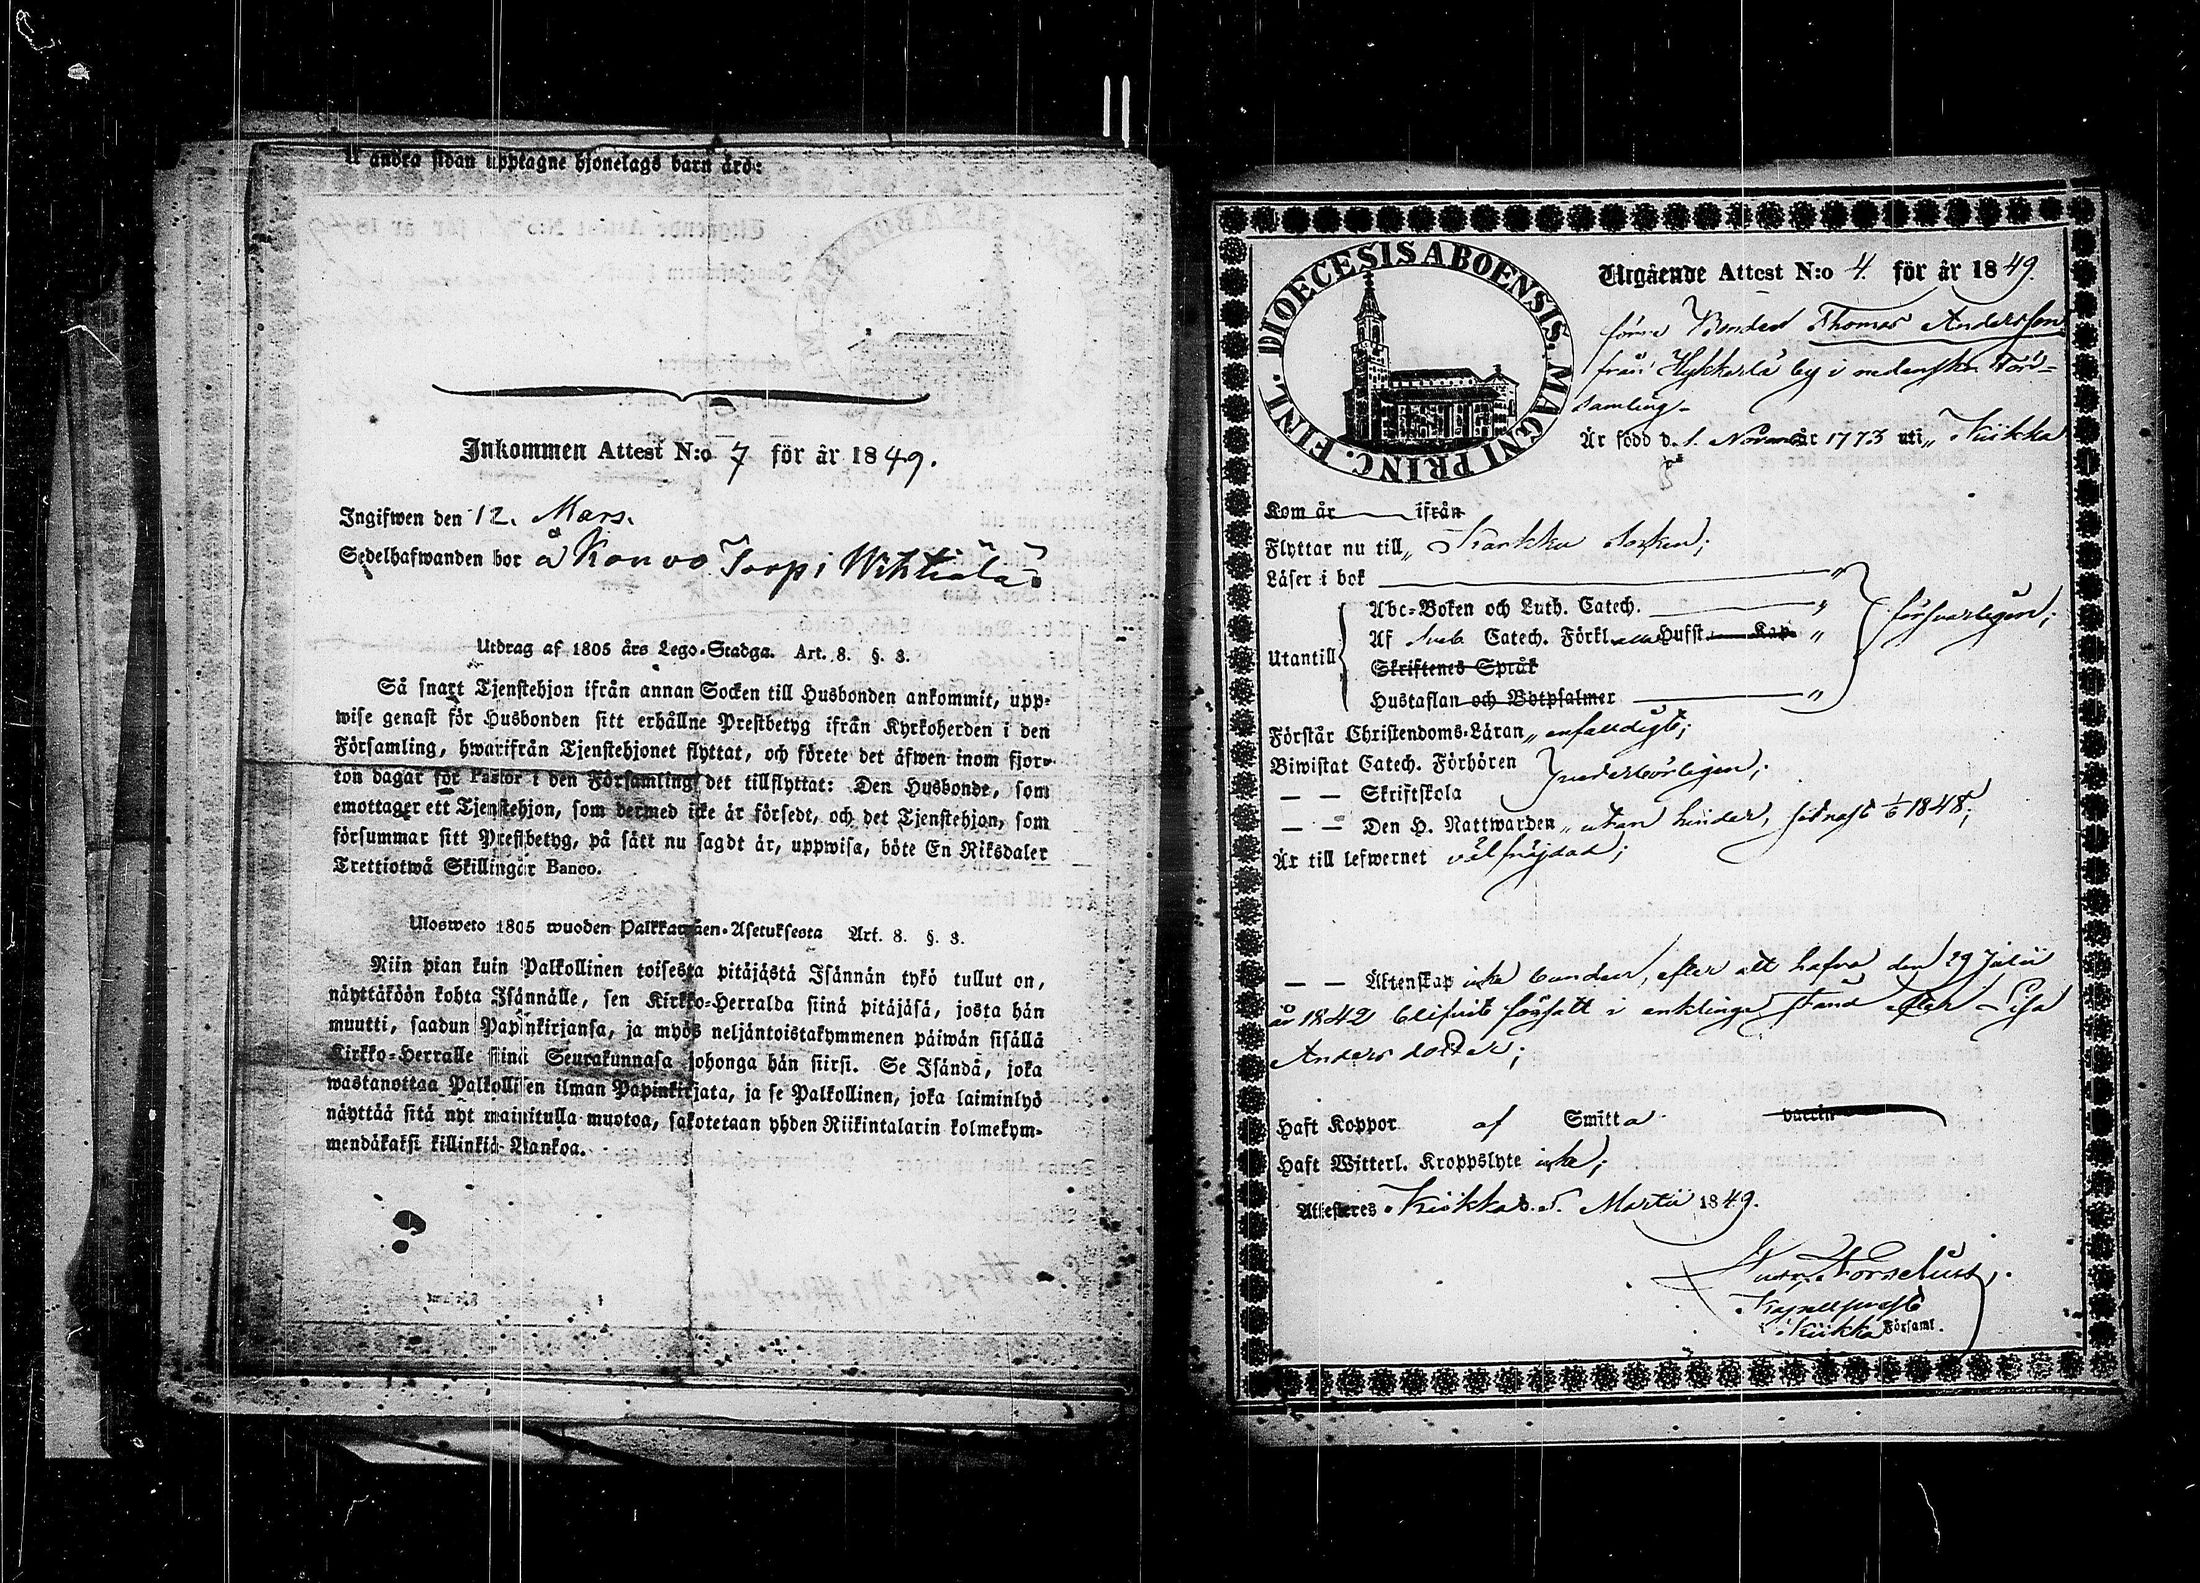 Å andra sidan upptagne hjonelags barn äro:
Inkommen Attest N:o 7 för år 1849.
Ingifwen den 12. Mars.
Sedelhafwanden bor å Konvo Torp i Wihtiälä.
Utdrag af 1805 års Lego-Stadga. Art. 8. §. 3.
Så snart Tjenstehjon ifrån annan Socken till Husbonden ankommit, upp-
wise genast för Husbonden sitt erhållne Prestbetyg ifrån Kyrkoherden i den
Församling, hwarifrån Tjenstehjonet flyttat, och förete det äfwen inom fjor-
ton dagar för Pastor i den Församling det tillflyttat: Den Husbonde, som
emottager ett Tjenstehjon, som dermed icke är försedt, och det Tjenstehjon, som
försummar sitt Prestbetyg, på sätt nu sagdt är, uppwisa, böte En Riksdaler
Trettiotwå Skillingar Banco.
Ulosweto 1805 wuoden Palkkawäen-Asetuksesta Art. 8. §. 3.
Niin pian kuin Palkollinen toisesta pitäjästä Isännän tykö tullut on,
näyttäköön kohta Isännälle, sen Kirkko-Herralda siinä pitäjäsä, josta hän
muutti, saadun Papinkirjansa, ja myös neljäntoistakymmenen päiwän sisällä
Kirkko-Herralle siinä Seurakunnasa johonga hän siirsi. Se Isändä, joka
wastanottaa Palkollisen ilman Papinkirjata, ja se Palkollinen, joka laiminlyö
näyttää sitä nyt mainitulla muotoa, sakotetaan yhden Riikintalarin kolmekym-
mendäkaksi killinkiä Bankoa.
DIOECESIS ABOENSIS. MAGNI PRINC. FINL.
Utgående Attest N:o 4. för år 1849.
förre Bonden Thomas Andersson
från Hykkerlä by i nedanskr. För-
samling
Är född d. 1. Novemb. år 1773 uti Kiikka
Kom år ifrån
Flyttar nu till Karkku Socken;
Läser i bok
Abc-Boken och Luth. Catech.
Af Sveb. Catech. Förkl. Husst. Kap försvarligen;
Utantill
Skriftenes Språk
Hustaflan och Botpsalmer
Förstår Christendoms-Läran enfaldigt;
Biwistat Catech. Förhören
— — Skriftskola
— — Den H. Nattwarden utan hinder, sednast 1/6 1848;
Är till lefwernet välfrägdad;
— — Äktenskap icke bunden, efter att hafva den 29 Julii
år 1842 blifvit försatt i enklinge stånd efter Lisa
Anders dotter;
Haft Koppor af Smitta vaccin
Haft Witterl. Kroppslyte icke;
Attesteres Kiikka d. 5. Martii 1849.
Kapellprest
Kiikka Församl.